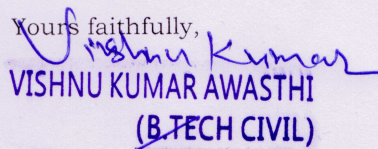 Yours faithfully,
Vishnu Kumar
VISHNU KUMAR AWASTHI
(B.TECH CIVIL)